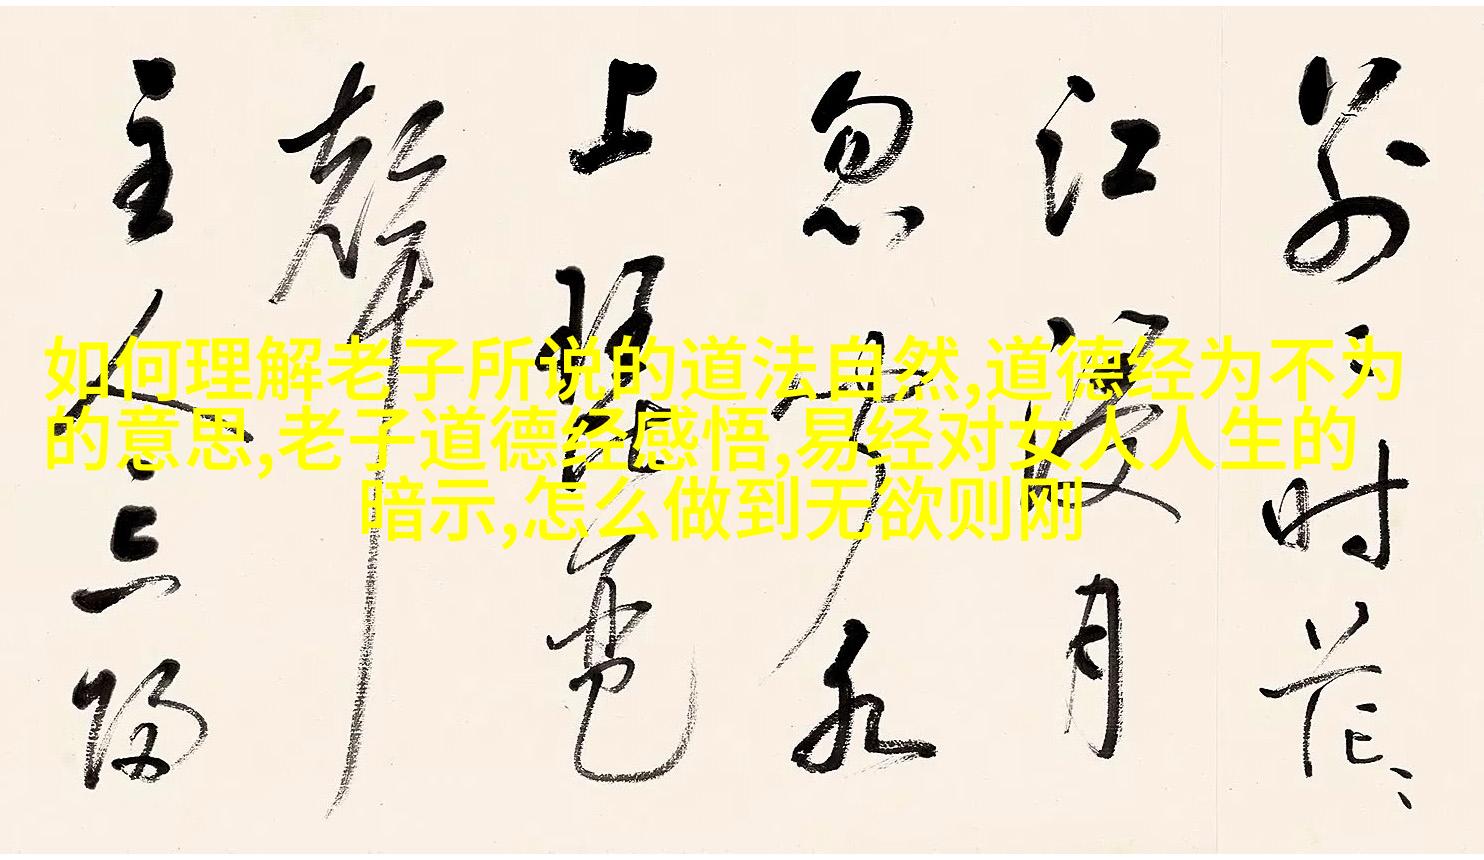 如何理解老子所说的道法自然,道德经为不为
的意思,老子道德经感悟,易经对女人人生的
暗示,怎么做到无欲则刚
别时茫
江浸月
忽闻水
上琵琶
聲
主人忘归